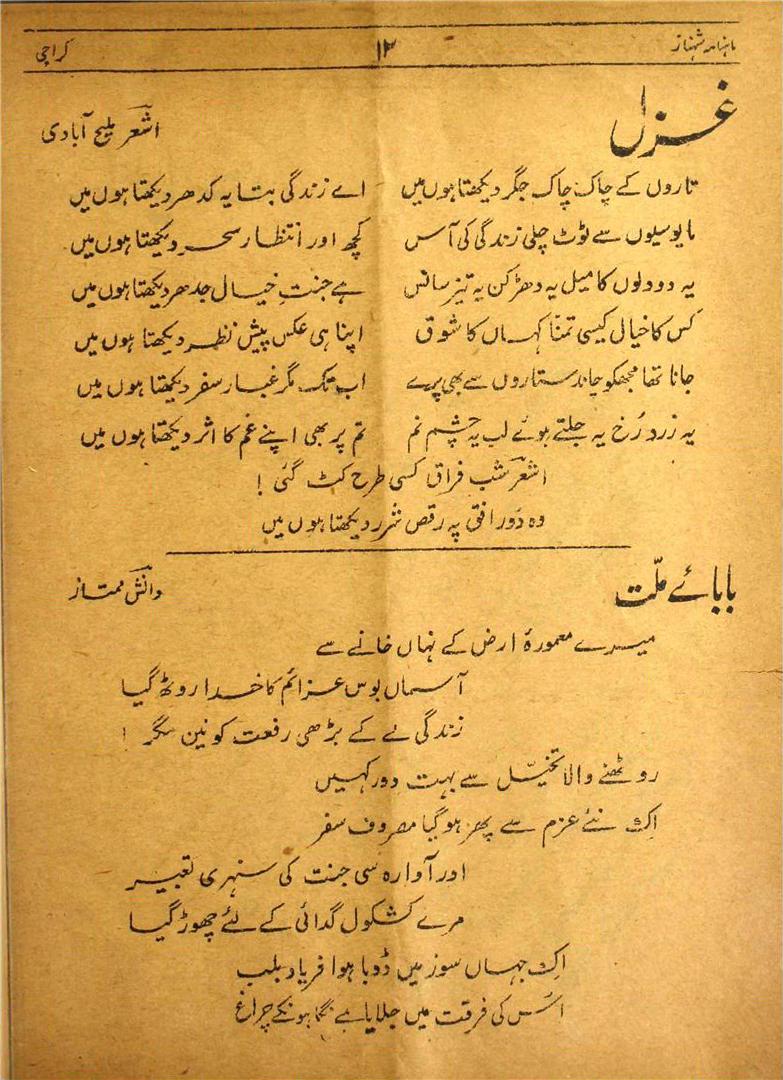 ماہنامہ شہناز ۱۳ کراچی
غزل
اشعر ملیح آبادی
تاروں کے چاک چاک جگر دیکھتا ہوں میں اے زندگی بتا یہ کدھر دیکھتا ہوں میں
مایوسیوں سے ٹوٹ چلی زندگی کی آس کچھ اور انتظار سحر دیکھتا ہوں میں
یہ دو دلوں کا میل یہ دھڑکن یہ تیز سانس ہے جنتِ خیال جدھر دیکھتا ہوں میں
کس کا خیال کیسی تمنّا کہاں کا شوق اپنا ہی عکس پیش نظر دیکھتا ہوں میں
جانا تھا مجھکو چاند ستاروں سے بھی پرے اب تک مگر غبار سفر دیکھتا ہوں میں
یہ زرد رُخ یہ جلتے ہوئے لب یہ چشم نم تم پر بھی اپنے غم کا اثر دیکھتا ہوں میں
اشعر شب فراق کسی طرح کٹ گئی !
وہ دُور افق پہ رقص شرر دیکھتا ہوں میں
بابائے ملّت
دانش ممتاز
میرے معمورۂ ارض کے نہاں خانے سے
آسماں بوس عزائم کا خدا روٹھ گیا
زندگی لے کے بڑھی رفعت کونین مگر !
روٹھنے والا تخیّل سے بہت دور کہیں
اِک نئے عزم سے پھر ہو گیا مصروف سفر
اور آوارہ سی جنت کی سنہری تعبیر
مرے کشکول گدائی کے لئے چھوڑ گیا
اِک جہاں سوز میں ڈوبا ہوا فریاد بلب
اسُ کی فرقت میں جلایا ہے نگاہونکے چراغ